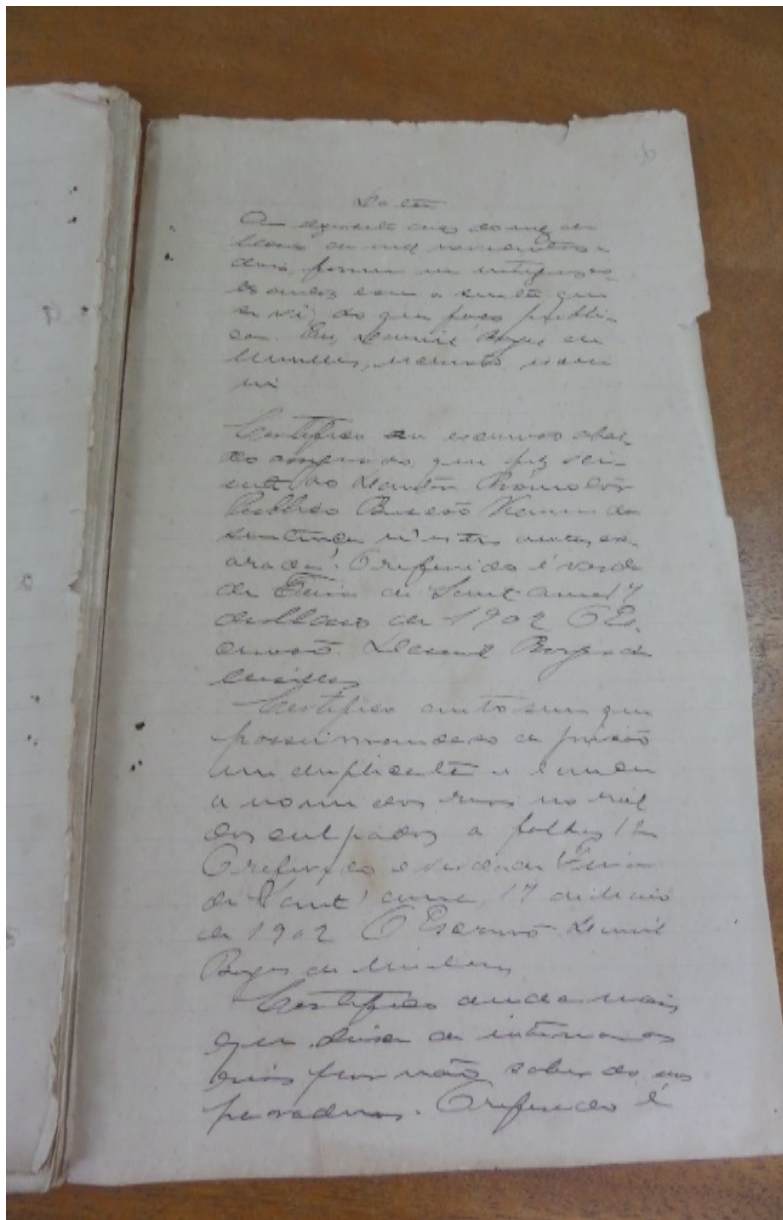 Data
do mez de
Maio de mil novecentos e
dois, foram me entregues
es autos com a sentença que
se vê; do que faço publi-
co. Eu, Leonil Borges de
escrivão, escre
vi
Certifico eu escrivão abai-
xo assignado, que fiz sci-
ente ao Doutor Promotor
Publico da
sentença n'estes autos, ex-
arada. O referido é verda
de Feira de Sant'anna 17
de Maio de 1902 O Es-
crivão Leonil Borges de
Certifico outrosim que
passei mandado de prisão
em duplicata e lancei
o nome dos reus no rol
dos culpados a folhas 12
O referido é verdade Feira
de Sant'anna, 17 de Maio
de 1902 O Escrivão Leonil
Borges de
Certifico ainda mais
que deixei de intimar os
reus por não saber do seu
paradeiro. O referido é